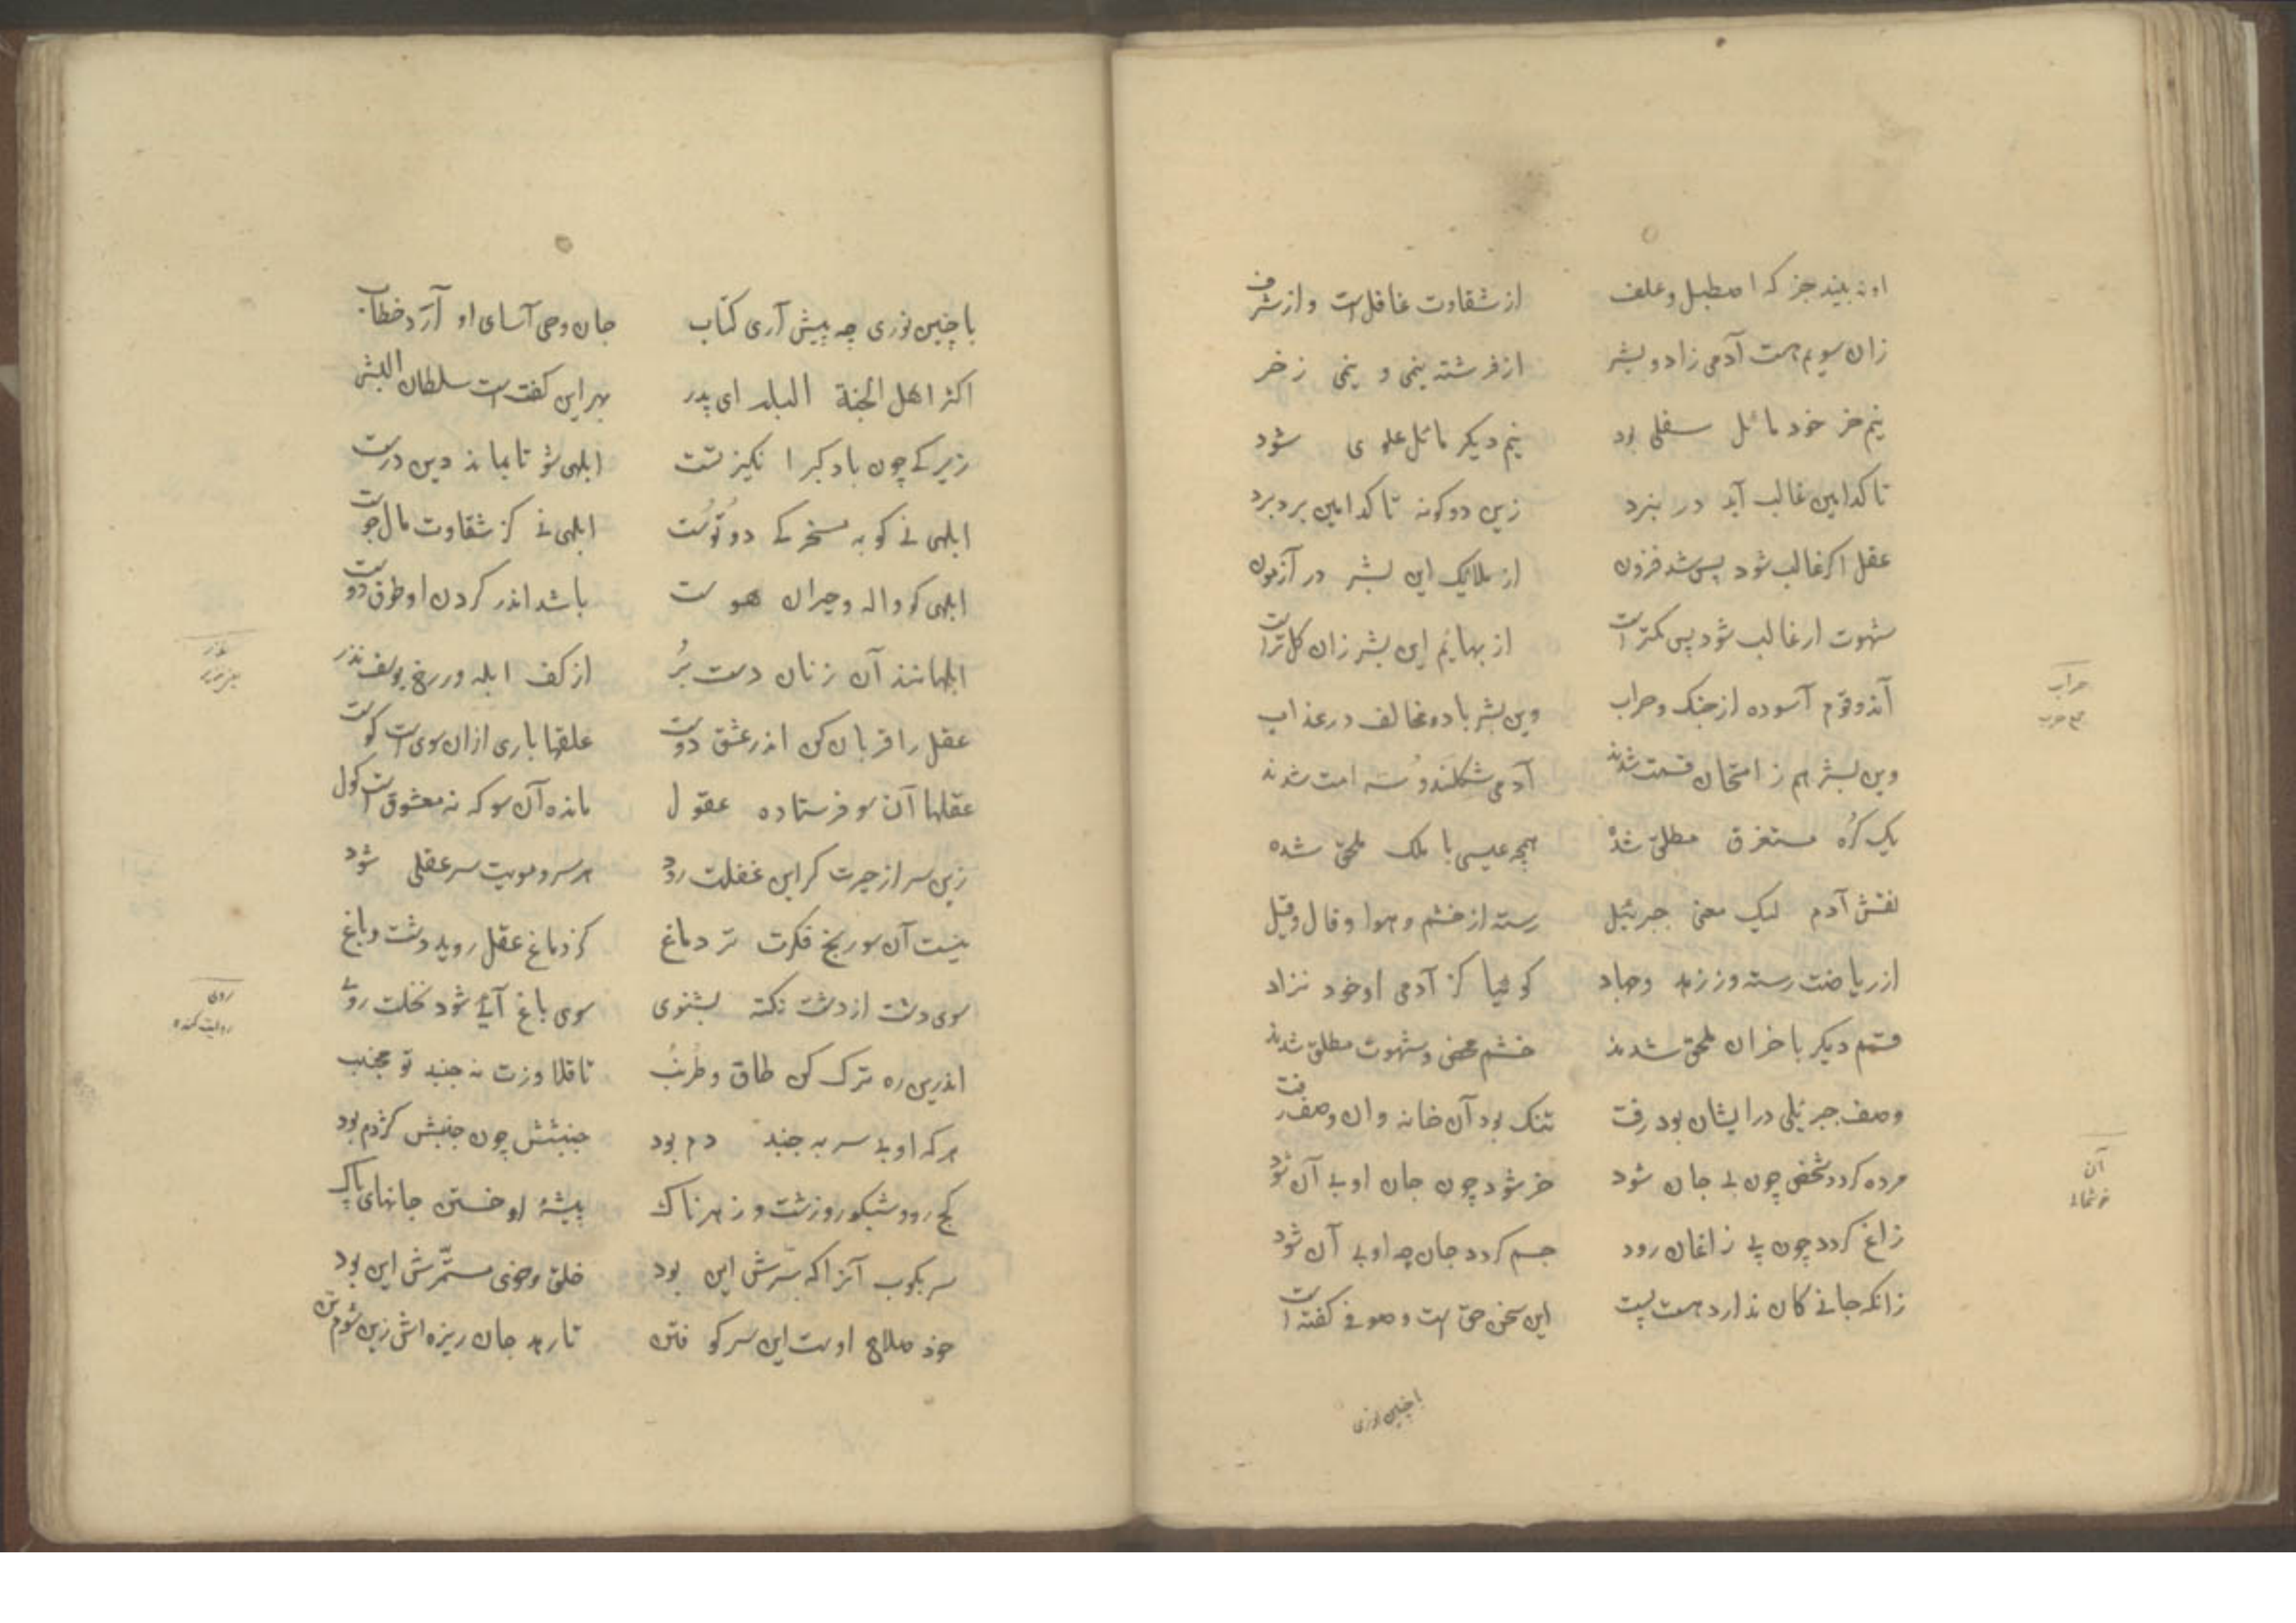 او نه بیند جز که اصطبل و علف از شقاوت غافل است و از شرف
زان سویم هست آدمی زاد و بشر از فرشته نیمی و نیمی ز خر
نیم خر خود مائل سفلی بود نیم دیگر مائل علوی شود
تا کدامین غالب آید در نبرد زین دو گونه تا کدامین برد برد
عقل اگر غالب شود پس شد فزون از ملایک این بشر در آزمون
شهوت ار غالب شود پس کمتر است از بهایم این بشر زان کابتر است
آندو قوم آسوده از جنگ و حراب وین بشر با دو مخالف در عذاب
حراب
جمع حرب
وین بشر هم ز امتحان قسمت شدند آدمی شکلند و سه امت شدند
یک گره مستغرق مطلق شده همچو عیسی با ملک ملحق شده
نقش آدم لیک معنی جبرئیل رسته از خشم و هوا و قال و قیل
از ریاضت رسته وز زهد و جهاد گوئیا کز آدمی او خود نزاد
قسم دیگر با خران ملحق شدند خشم محض و شهوت مطلق شدند
وصف جبریلی در ایشان بود رفت تنگ بود آن خانه و ان وصف رفت
مرده گردد شخص چون بی جان شود خر شود چون جان او بی آن شود
آن
زاغ گردد چون پی زاغان رود جسم گردد جان چه او بی آن شود
زانکه جانی کان ندارد هست پست این سخن حق است و صوفی گفته است
با چنین نوری
با چنین نوری چه پیش آری کتاب جان وحی آسای او آرد خطاب
اکثر اهل الجنة البله ای پدر بهر این گفت است سلطان البشر
زیرکی چون باد کبر انگیز تست ابلهی شو تا بماند دین درست
ابلهی نی کو به مسخرگی دو توست ابلهی نی کز شقاوت مال جوست
ابلهی کو واله و حیران هوست باشد اندر گردن او طوق دوست
ابلهانند آن زنان دست بر از کف ابله ور رخ یوسف نذر
عقل را قربان کن اندر عشق دوست علقها باری از ان سوی است کوست
عقلها آن سو فرستاده عقول مانده آن سو که نه معشوق است گول
زین سر از حیرت گر این غفلت رود هر سر مویت سر عقلی شود
نیست آن سو رنج فکرت تر دماغ کز دماغ عقل روید دشت و باغ
سوی دشت از دشت نکته بشنوی سوی باغ آئی شود نخلت روی
روی
اندرین ره ترک کن طاق و طرنب تا قلاوزت نه جنبد تو مجنب
هر که او بی سر به جنبد دم بود جنبشش چون جنبش کژدم بود
کج رود شبکور و زشت و زهرناک پیشهٔ او خستن جانهای پاک
سر بکوب آنرا که سرش این بود خلق و خوی مستمرش این بود
خود صلاح اوست این سر کوفتن تا رهد جان ریزه اش زین شوم تن